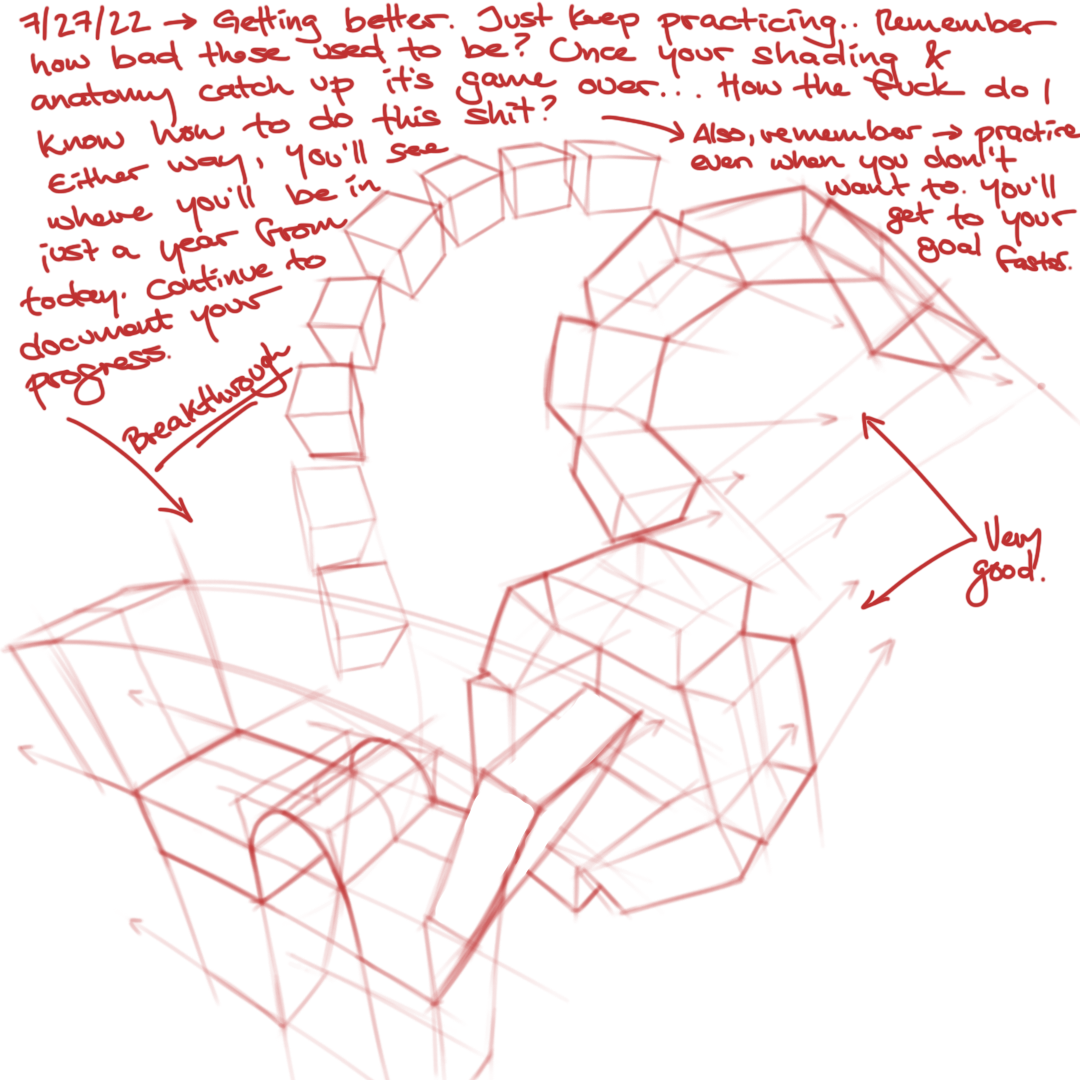 7/27/22 → Getting better. Just keep practicing.. Remember
how bad these used to be? Once your shading &
anatomy catch up it's game over... How the fuck do I
know how to do this shit?
Either way, you'll see
where you'll be in
just a year from
today. Continue to
document your
progress.
→ Also, remember → practice
even when you don't
want to. You'll
get to your
goal faster.
Breakthrough
Very
good.